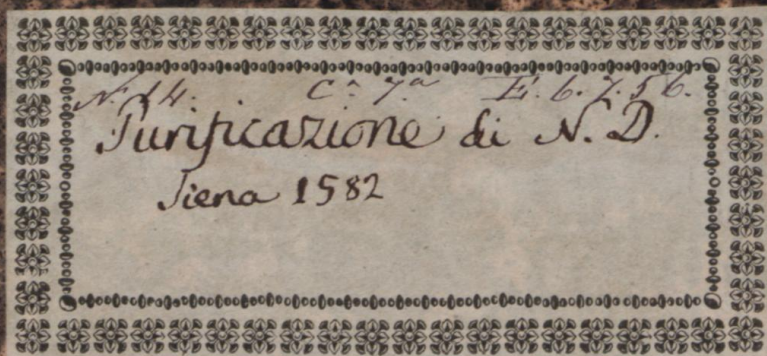 N. 14. Cª 7.ª E. 6. 7. 56.
Purificazione di N. D.
Siena 1582